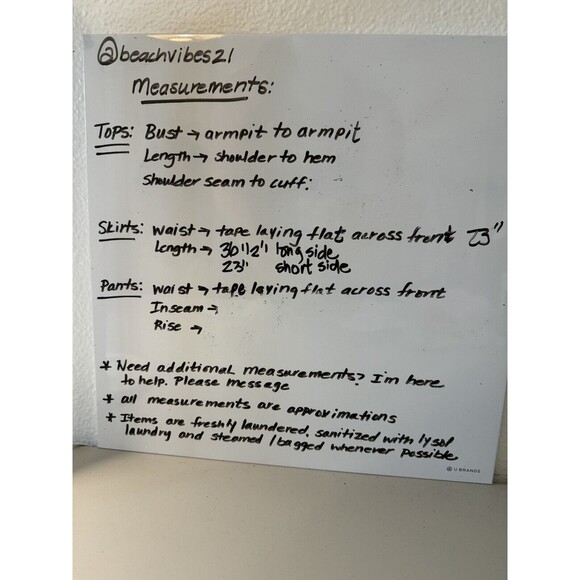 @beachvibes21
Measurements:
Tops: Bust → armpit to armpit
Length → shoulder to hem
Shoulder seam to cuff:
Skirts: waist → tape laying flat across front 23"
Length → 30 1/2" long side
23" short side
Pants: waist → tape laying flat across front
Inseam →
Rise →
* Need additional measurements? I'm here
to help. Please message
* all measurements are approximations
* Items are freshly laundered, sanitized with lysol
laundry and steamed / bagged whenever possible
U BRANDS